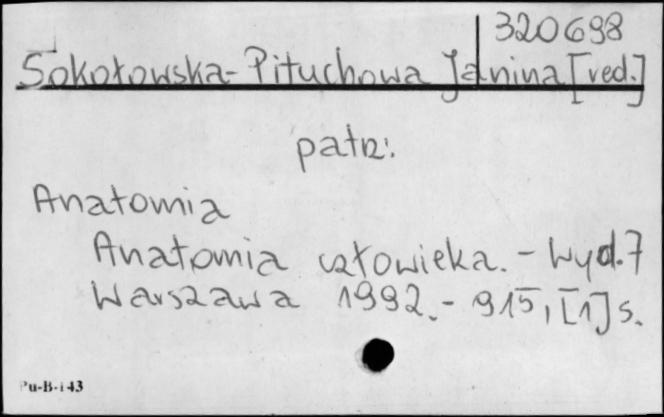 320698
Sokołowska-Pituchowa Janina [red.]
patrz:
Anatomia
Anatomia człowieka. - Wyd. 7
Warszawa 1992. - 915, [1] s.
Pu-B-143